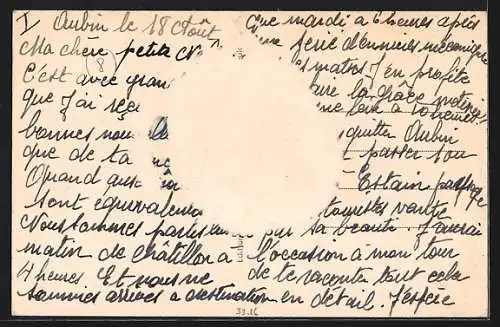 I Aubin le 18 Août
Ma chère petite
C'est avec gran
que J'ai reçu
bonnes nou
que de ta
Quand aux
sont équivalentes
Nous sommes partis
matin de Châtillon a
4 heures Et nous ne
sommes arrivés a destination
que mardi a 6 heures après
une série d'ennuies mécanique
J'en profite
la grâce matinée
quitter Aubin
passer son
Estain passage
touristes vante
sa beauté. J'aurai
l'occasion à mon tour
de te raconter tout cela
en détail. J'espère
33.26